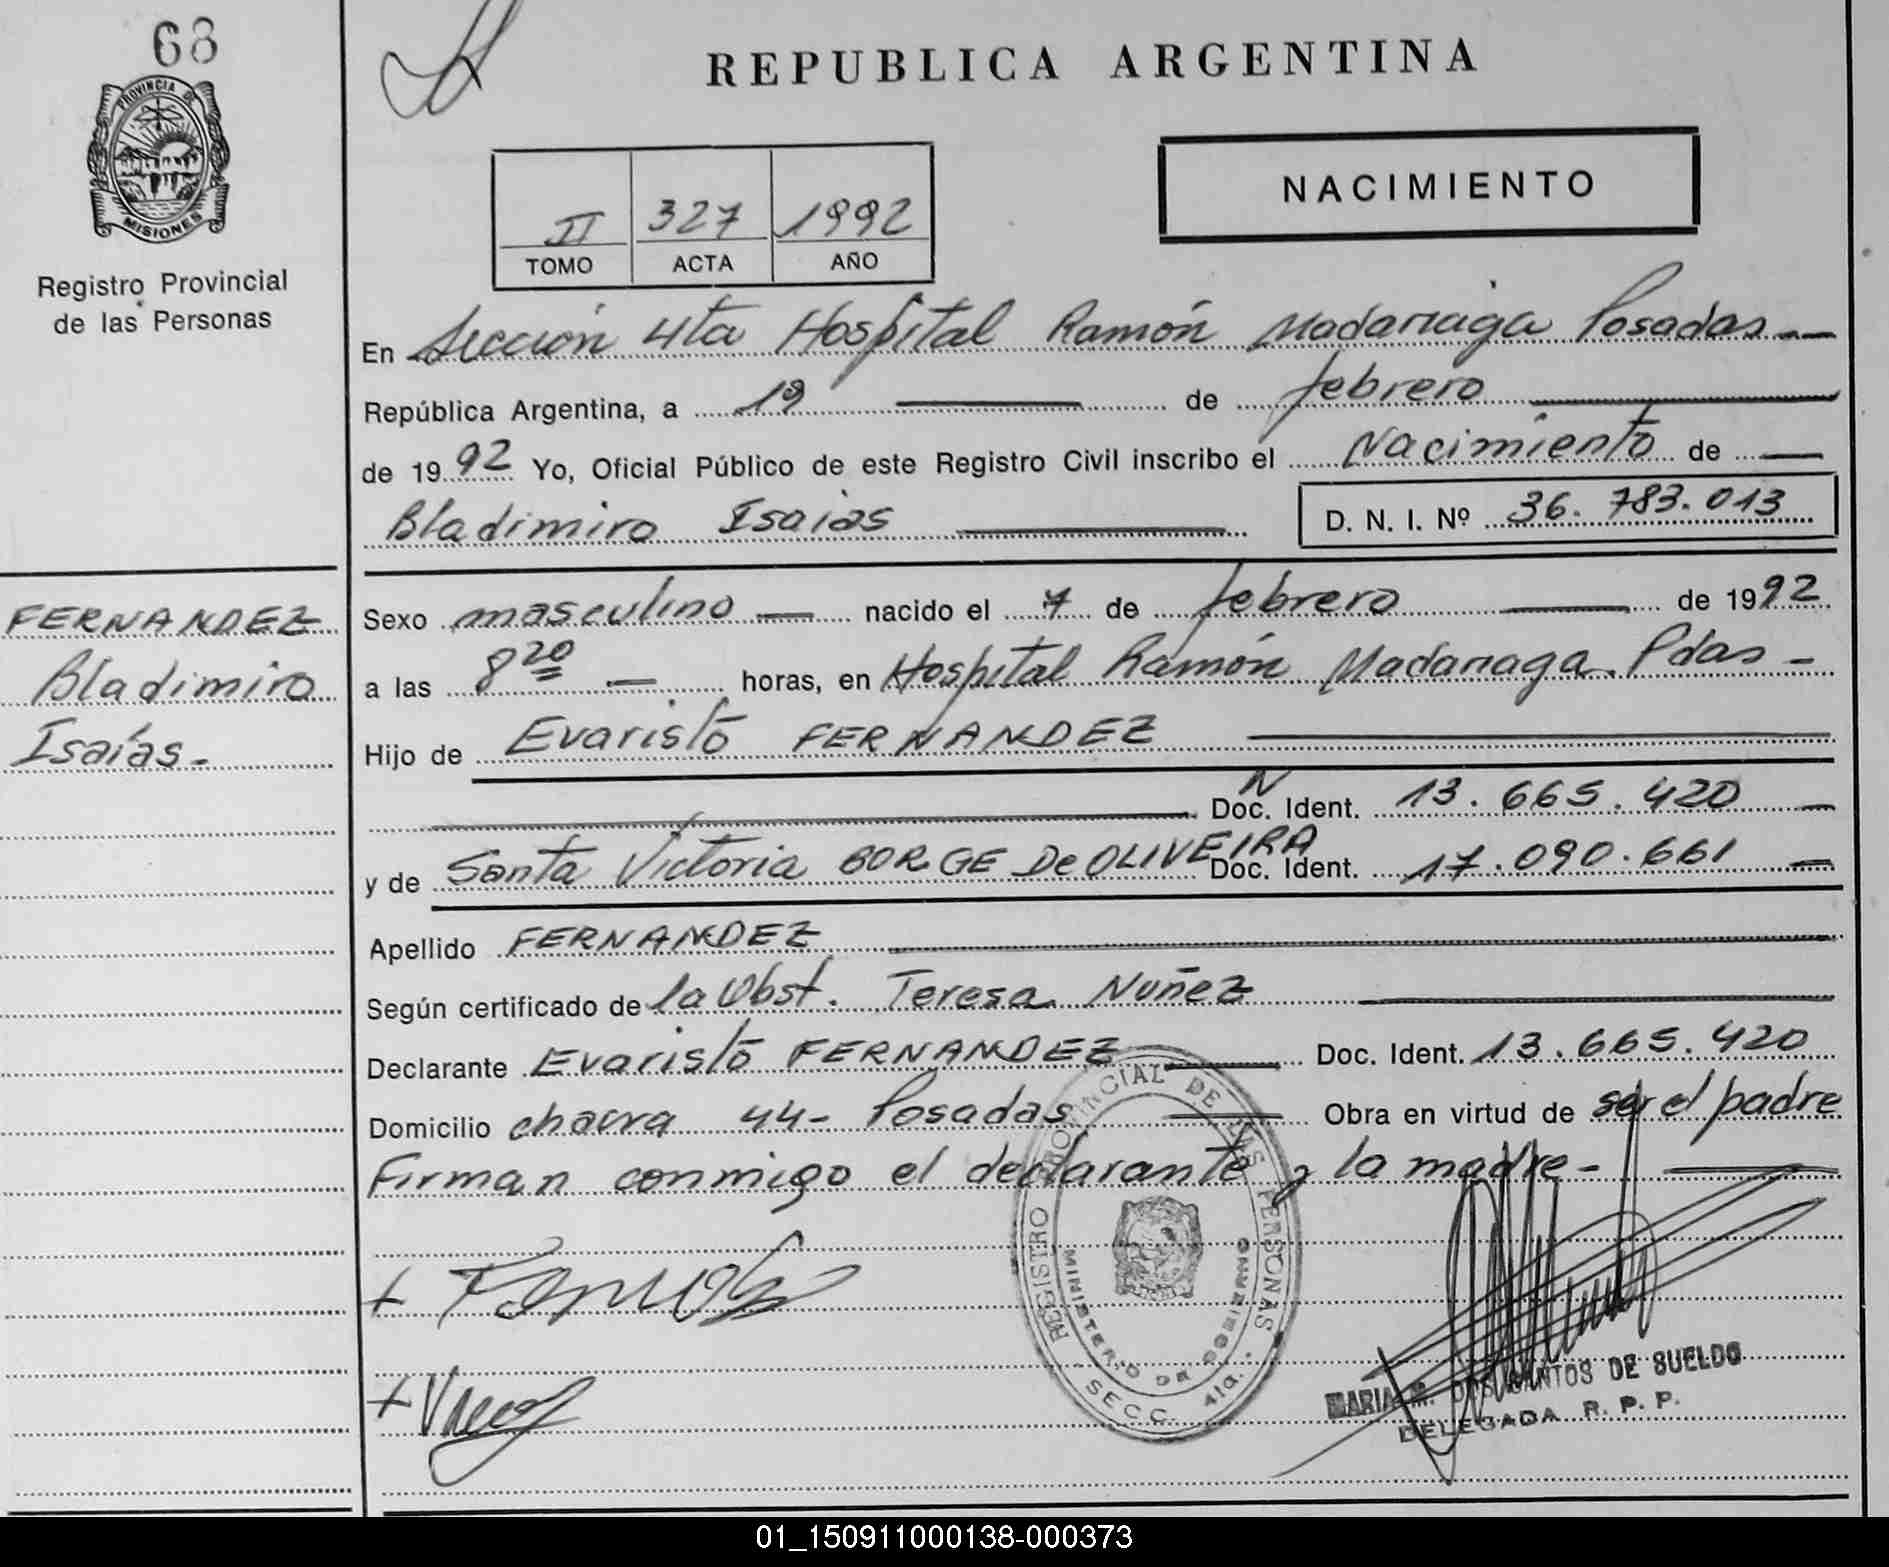 68
PROVINCIA DE
MISIONES
Registro Provincial
de las Personas
REPUBLICA ARGENTINA
II 327 1992
TOMO ACTA AÑO
NACIMIENTO
En Sección 4ta Hospital Ramón Madariaga Posadas
República Argentina, a 19 de febrero
de 1992 Yo, Oficial Público de este Registro Civil inscribo el Nacimiento de
Bladimiro Isaias D. N. I. Nº 36.783.013
FERNANDEZ
Bladimiro
Isaías.
Sexo masculino nacido el 7 de febrero de 1992
a las 8 20 horas, en Hospital Ramón Madariaga. Pdas
Hijo de Evaristo FERNANDEZ
N
Doc. Ident. 13.665.420
y de Santa Victoria BORGE De OLIVEIRA Doc. Ident. 17.090.661
Apellido FERNANDEZ
Según certificado de la Obst. Teresa Nuñez
Declarante Evaristo FERNANDEZ Doc. Ident. 13.665.420
Domicilio chacra 44- Posadas Obra en virtud de ser el padre
Firman conmigo el declarante y la madre-
REGISTRO PROVINCIAL DE LAS PERSONAS
MINISTERIO DE GOBIERNO
SECC. 4ta.
MARIA M. DOS SANTOS DE SUELDO
DELEGADA R. P. P.
01_150911000138-000373